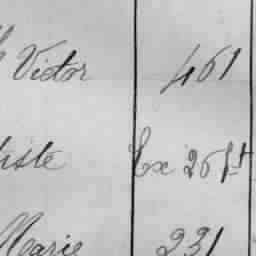 Victor 461
iste Ex 26 St
Marie 231